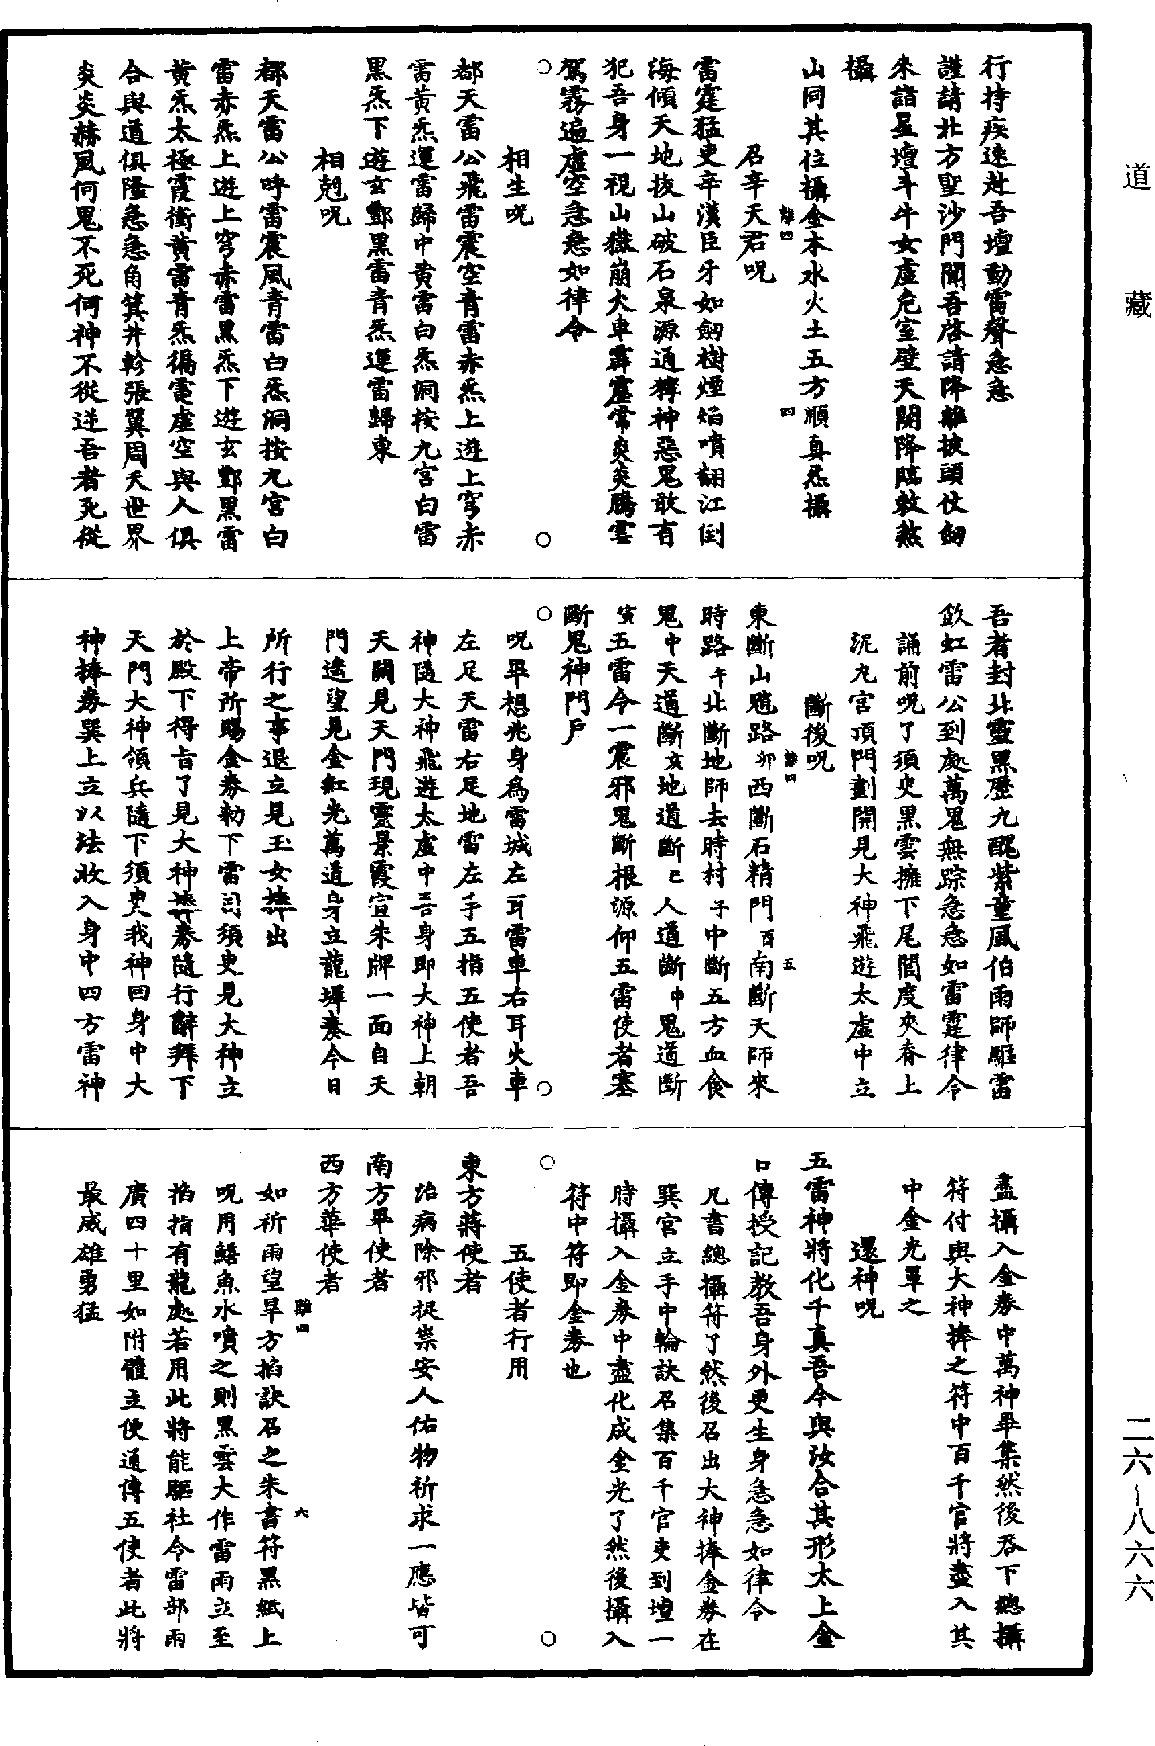 道藏
行持疾速赴吾壇動雷聲急急
謹請北方聖沙門聞吾啓請降離披頭仗劒
來詣星壇斗牛女虛危室壁天關降臨敕煞
攝
山同其位攝金木水火土五方順真炁攝
離四 四
召辛天君呪
雷霆猛吏辛漢臣牙如劒樹煙焰噴翻江倒
海傾天地拔山破石泉源通獰神惡鬼敢有
犯吾身一視山嶽崩火車霹靂常炎炎鵬雲
駕霧遍虛空急急如律令
相生呪
都天雷公飛雷震空青雷赤炁上遊上穹赤
雷黃炁運雷歸中黃雷白炁洞按九宮白雷
黑炁下遊玄酆黑雷青炁運雷歸東
相剋呪
都天雷公呼雷震風青雷白炁洞按九宮白
雷赤炁上遊上穹赤雷黑炁下遊玄酆黑雷
黃炁太極霞衝黃雷青炁徧電虛空與人俱
合與道俱隆急急角箕井軫張翼周天世界
炎炎赫風何鬼不死何神不從逆吾者死從
吾者封北靈黑歷九醜紫童風伯雨師驅雷
欻虹雷公到處萬鬼無踪急急如雷霆律令
誦前呪了須臾黑雲擁下尾閭度夾脊上
泥丸宮頂門劃開見大神飛遊太虛中立
斷後呪
離四 五
東斷山魈路卯西斷石精門酉南斷天師來
時路午北斷地師去時村子中斷五方血食
鬼中天道斷亥地道斷巳人道斷申鬼道斷
寅五雷令一震邪鬼斷根源仰五雷使者塞
斷鬼神門戶
呪畢想兆身爲雷城左耳雷車右耳火車
左足天雷右足地雷左手五指五使者吾
神隨大神飛遊太虛中吾身即大神上朝
天闕見天門現靈景霞宣朱牌一面自天
門遙望見金紅光萬道身立龍墀奏今日
所行之事退立見玉女捧出
上帝所賜金券勑下雷司須臾見大神立
於殿下得旨了見大神捧券隨行辭拜下
天門大神領兵隨下須臾我神回身中大
神捧券巽上立以法收入身中四方雷神
盡攝入金券中萬神畢集然後吞下總攝
符付與大神捧之符中百千官將盡入其
中金光罩之
還神呪
五雷神將化千真吾今與汝合其形太上金
口傳授記教吾身外更生身急急如律令
凡書總攝符了然後召出大神捧金券在
巽宮立手中輪訣召集百千官吏到壇一
時攝入金券中盡化成金光了然後攝入
符中符即金券也
五使者行用
東方蔣使者
治病除邪捉祟安人佑物祈求一應皆可
南方畢使者
西方華使者
離四 六
如祈雨望旱方掐訣召之朱書符黑紙上
呪用鱔魚水噴之則黑雲大作雷雨立至
掐指有龍處若用此將能驅社令雷部雨
廣四十里如附體立便通傳五使者此將
最威雄勇猛
二六-八六六